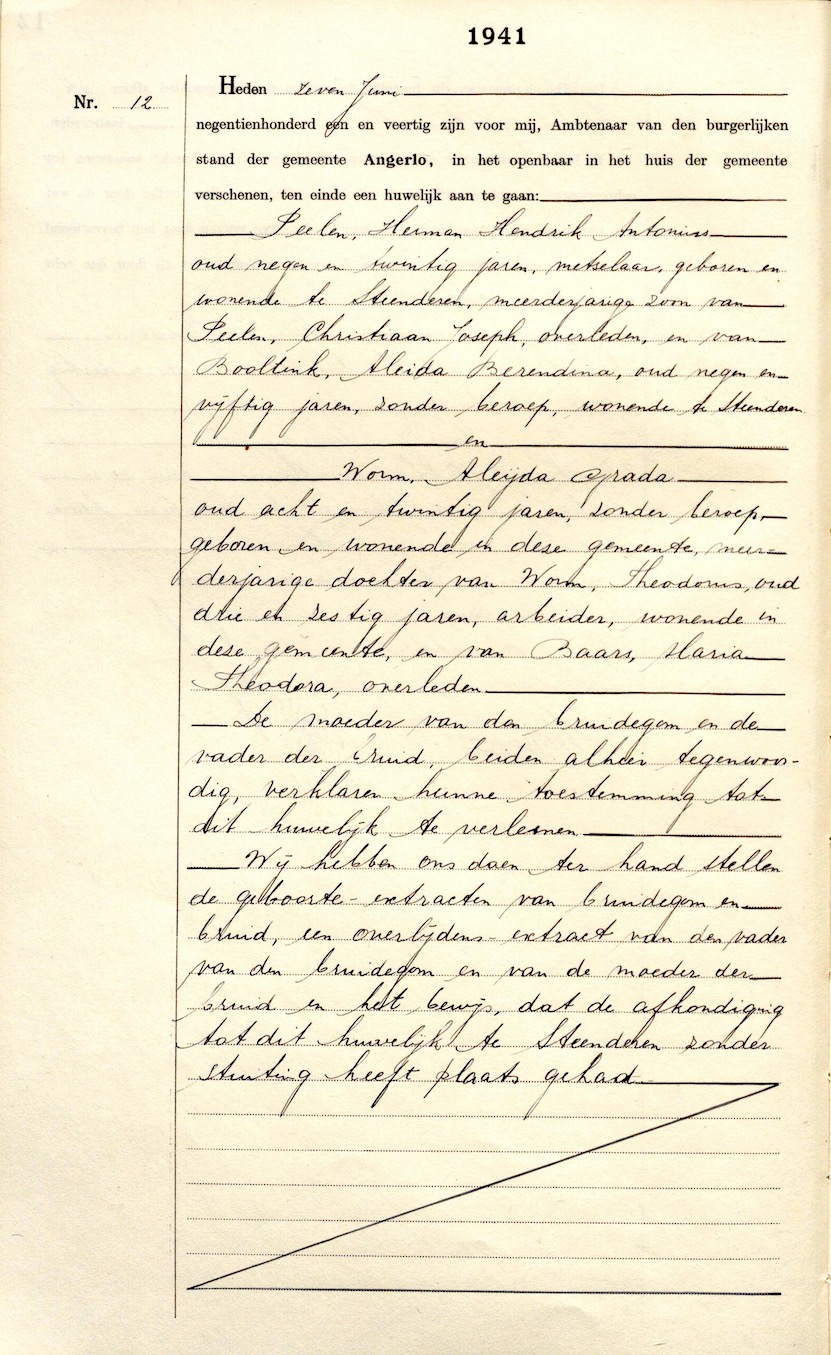 1941
Nr. 12
Heden zeven Juni
negentienhonderd een en veertig zijn voor mij, Ambtenaar van den burgerlijken
stand der gemeente Angerlo, in het openbaar in het huis der gemeente
verschenen, ten einde een huwelijk aan te gaan:
Peelen, Herman Hendrik Antonius
oud negen en twintig jaren, metselaar, geboren en
wonende te Steenderen, meerderjarige zoon van
Peelen, Christiaan Joseph, overleden, en van
Booltink, Aleida Berendina, oud negen en
vijftig jaren, zonder beroep, wonende te Steenderen
en
Worm, Aleijda Grada
oud acht en twintig jaren, zonder beroep,
geboren en wonende in deze gemeente, meer-
derjarige dochter van Worm, Theodorus, oud
drie en zestig jaren, arbeider, wonende in
deze gemeente, en van Baars, Maria
Theodora, overleden
De moeder van den bruidegom en de
vader der bruid, beiden alhier tegenwoor-
dig, verklaren hunne toestemming tot
dit huwelijk te verleenen
Wij hebben ons doen ter hand stellen
de geboorte-extracten van bruidegom en
bruid, een overlijdens-extract van den vader
van den bruidegom en van de moeder der
bruid en het bewijs, dat de afkondiging
tot dit huwelijk te Steenderen zonder
stuiting heeft plaats gehad